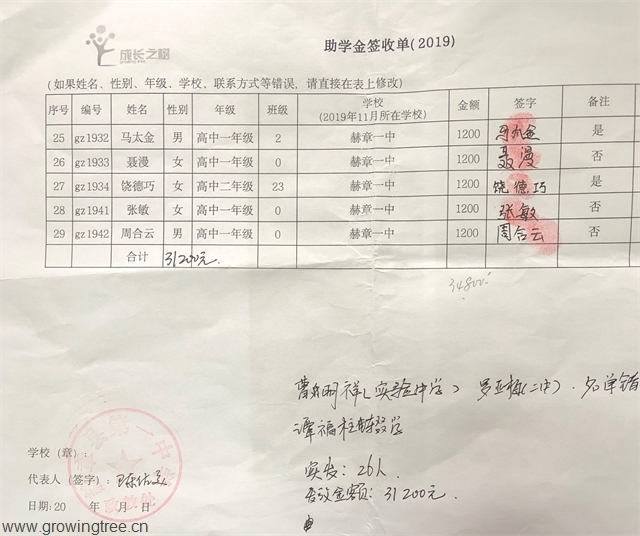 成长之树
www.growingtree.cn
助学金签收单(2019)
(如果姓名、性别、年级、学校、联系方式等错误,请直接在表上修改)
序号 编号 姓名 性别 年级 班级 学校 (2019年11月所在学校) 金额 签字 备注
25 gz1932 马太金 男 高中一年级 2 赫章一中 1200 马太金 是
26 gz1933 聂漫 女 高中一年级 0 赫章一中 1200 聂漫 否
27 gz1934 饶德巧 女 高中二年级 23 赫章一中 1200 饶德巧 是
28 gz1941 张敏 女 高中一年级 0 赫章一中 1200 张敏 否
29 gz1942 周合云 男 高中一年级 0 赫章一中 1200 周合云 否
合计 31200元
34800
祥(实验中学) 罗亚梅(二中). 名单错
谭福柱辍学
学校(章):
代表人(签字):
实发: 26人
日期:20 年 月 日
金额: 31200元.
www.growingtree.cn